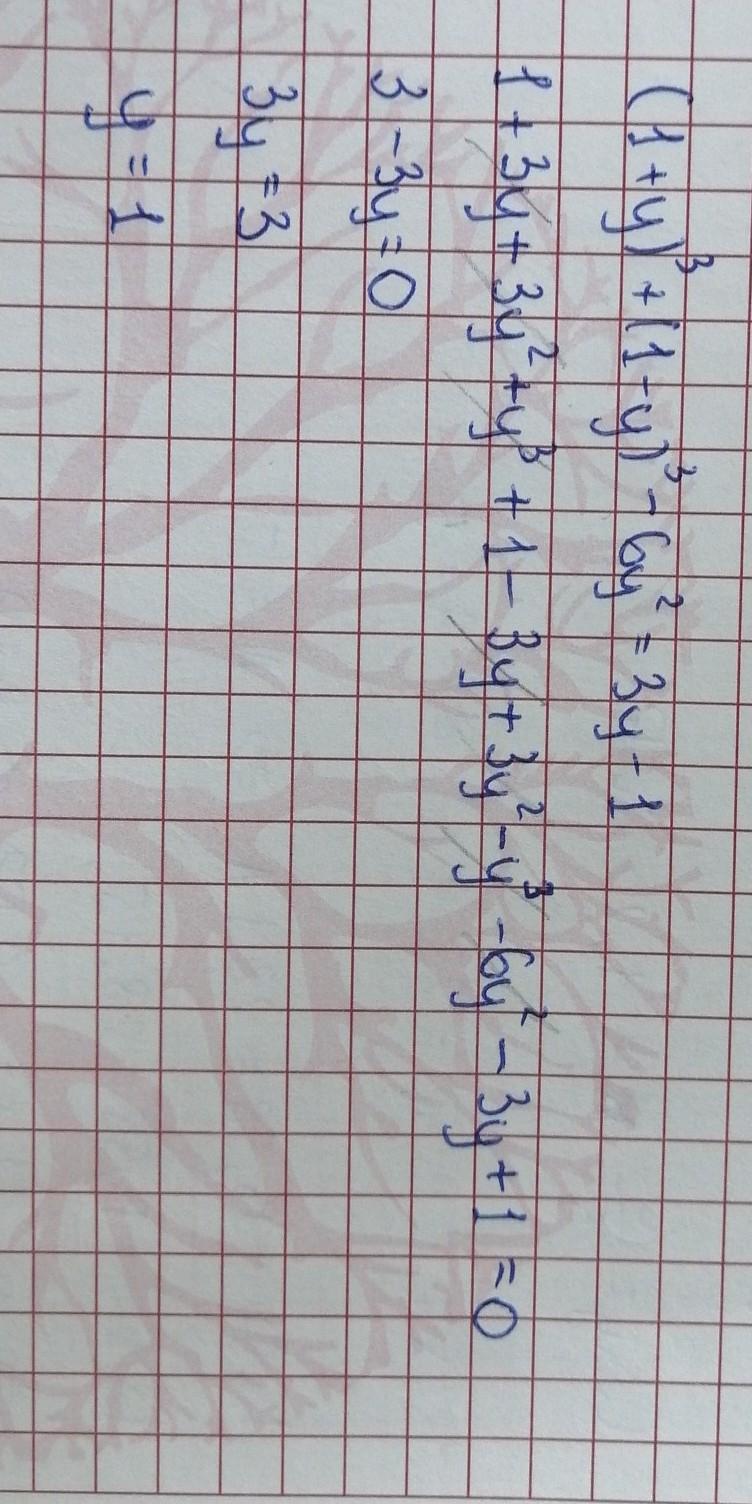 (1+y)³+(1-y)³-6y²=3y-1
1+3y+3y²+y³+1-3y+3y²-y³-6y²-3y+1=0
3-3y=0
3y=3
y=1